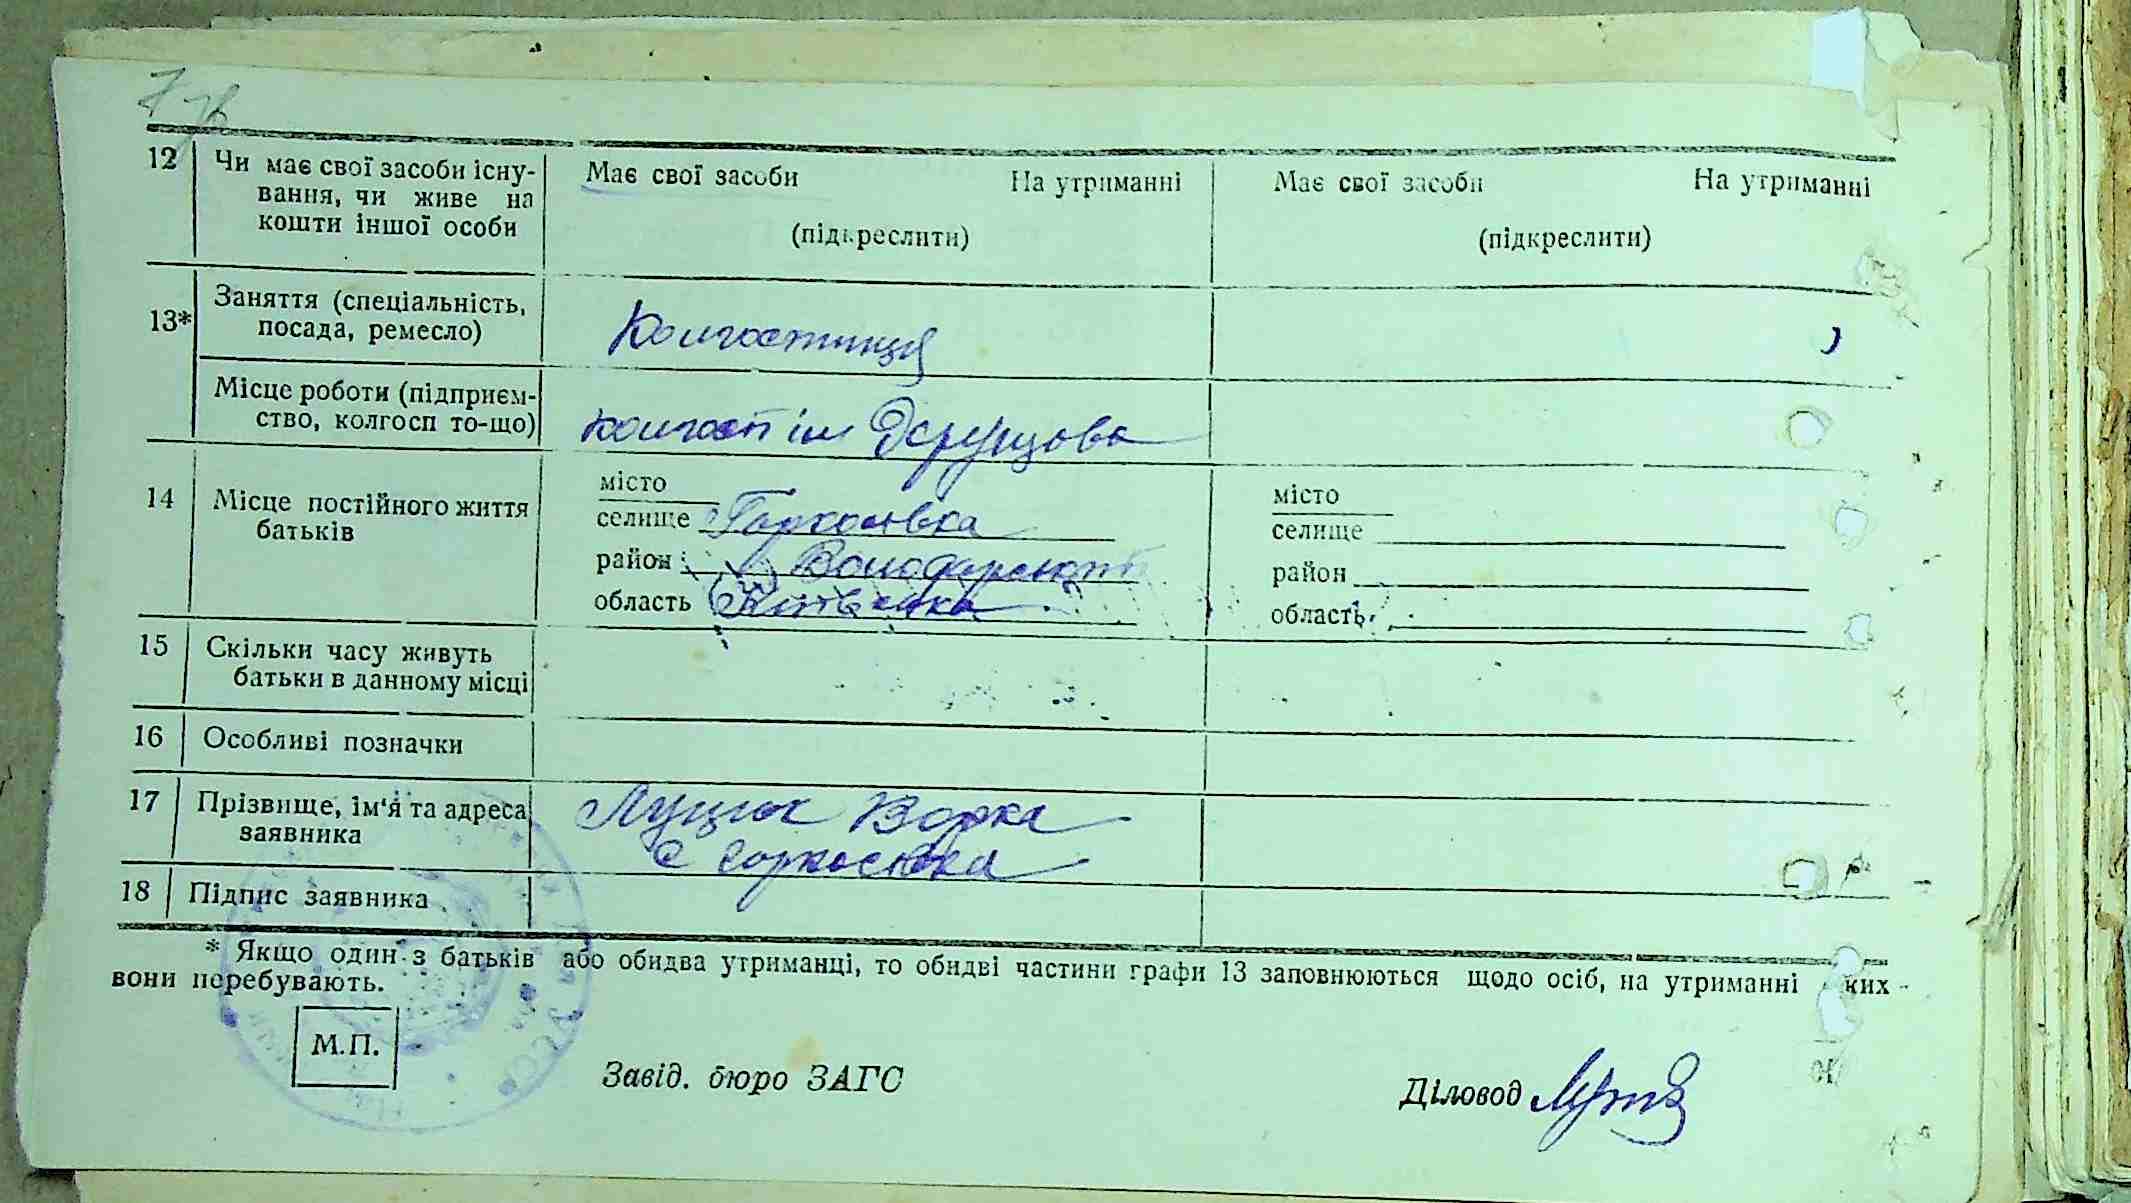 7 зв
12 Чи має свої засоби існу- Має свої засоби На утриманні Має свої засоби На утриманні
вання, чи живе на
кошти іншої особи (підкреслити) (підкреслити)
13* Заняття (спеціальність,
посада, ремесло) Колгоспниця
Місце роботи (підприєм-
ство, колгосп то-що) колгосп ім
14 Місце постійного життя
батьків
місто місто
селище Гаркосівка селище
район Володарський район
область Київська область
15 Скільки часу живуть
батьки в данному місці
16 Особливі позначки
17 Прізвище, ім'я та адреса
заявника
Луцик Ворка
с Гаркосівка
18 Підпис заявника
* Якщо один з батьків або обидва утриманці, то обидві частини графи 13 заповнюються щодо осіб, на утриманні ких
вони перебувають.
М.П.
Завід. бюро ЗАГС Діловод